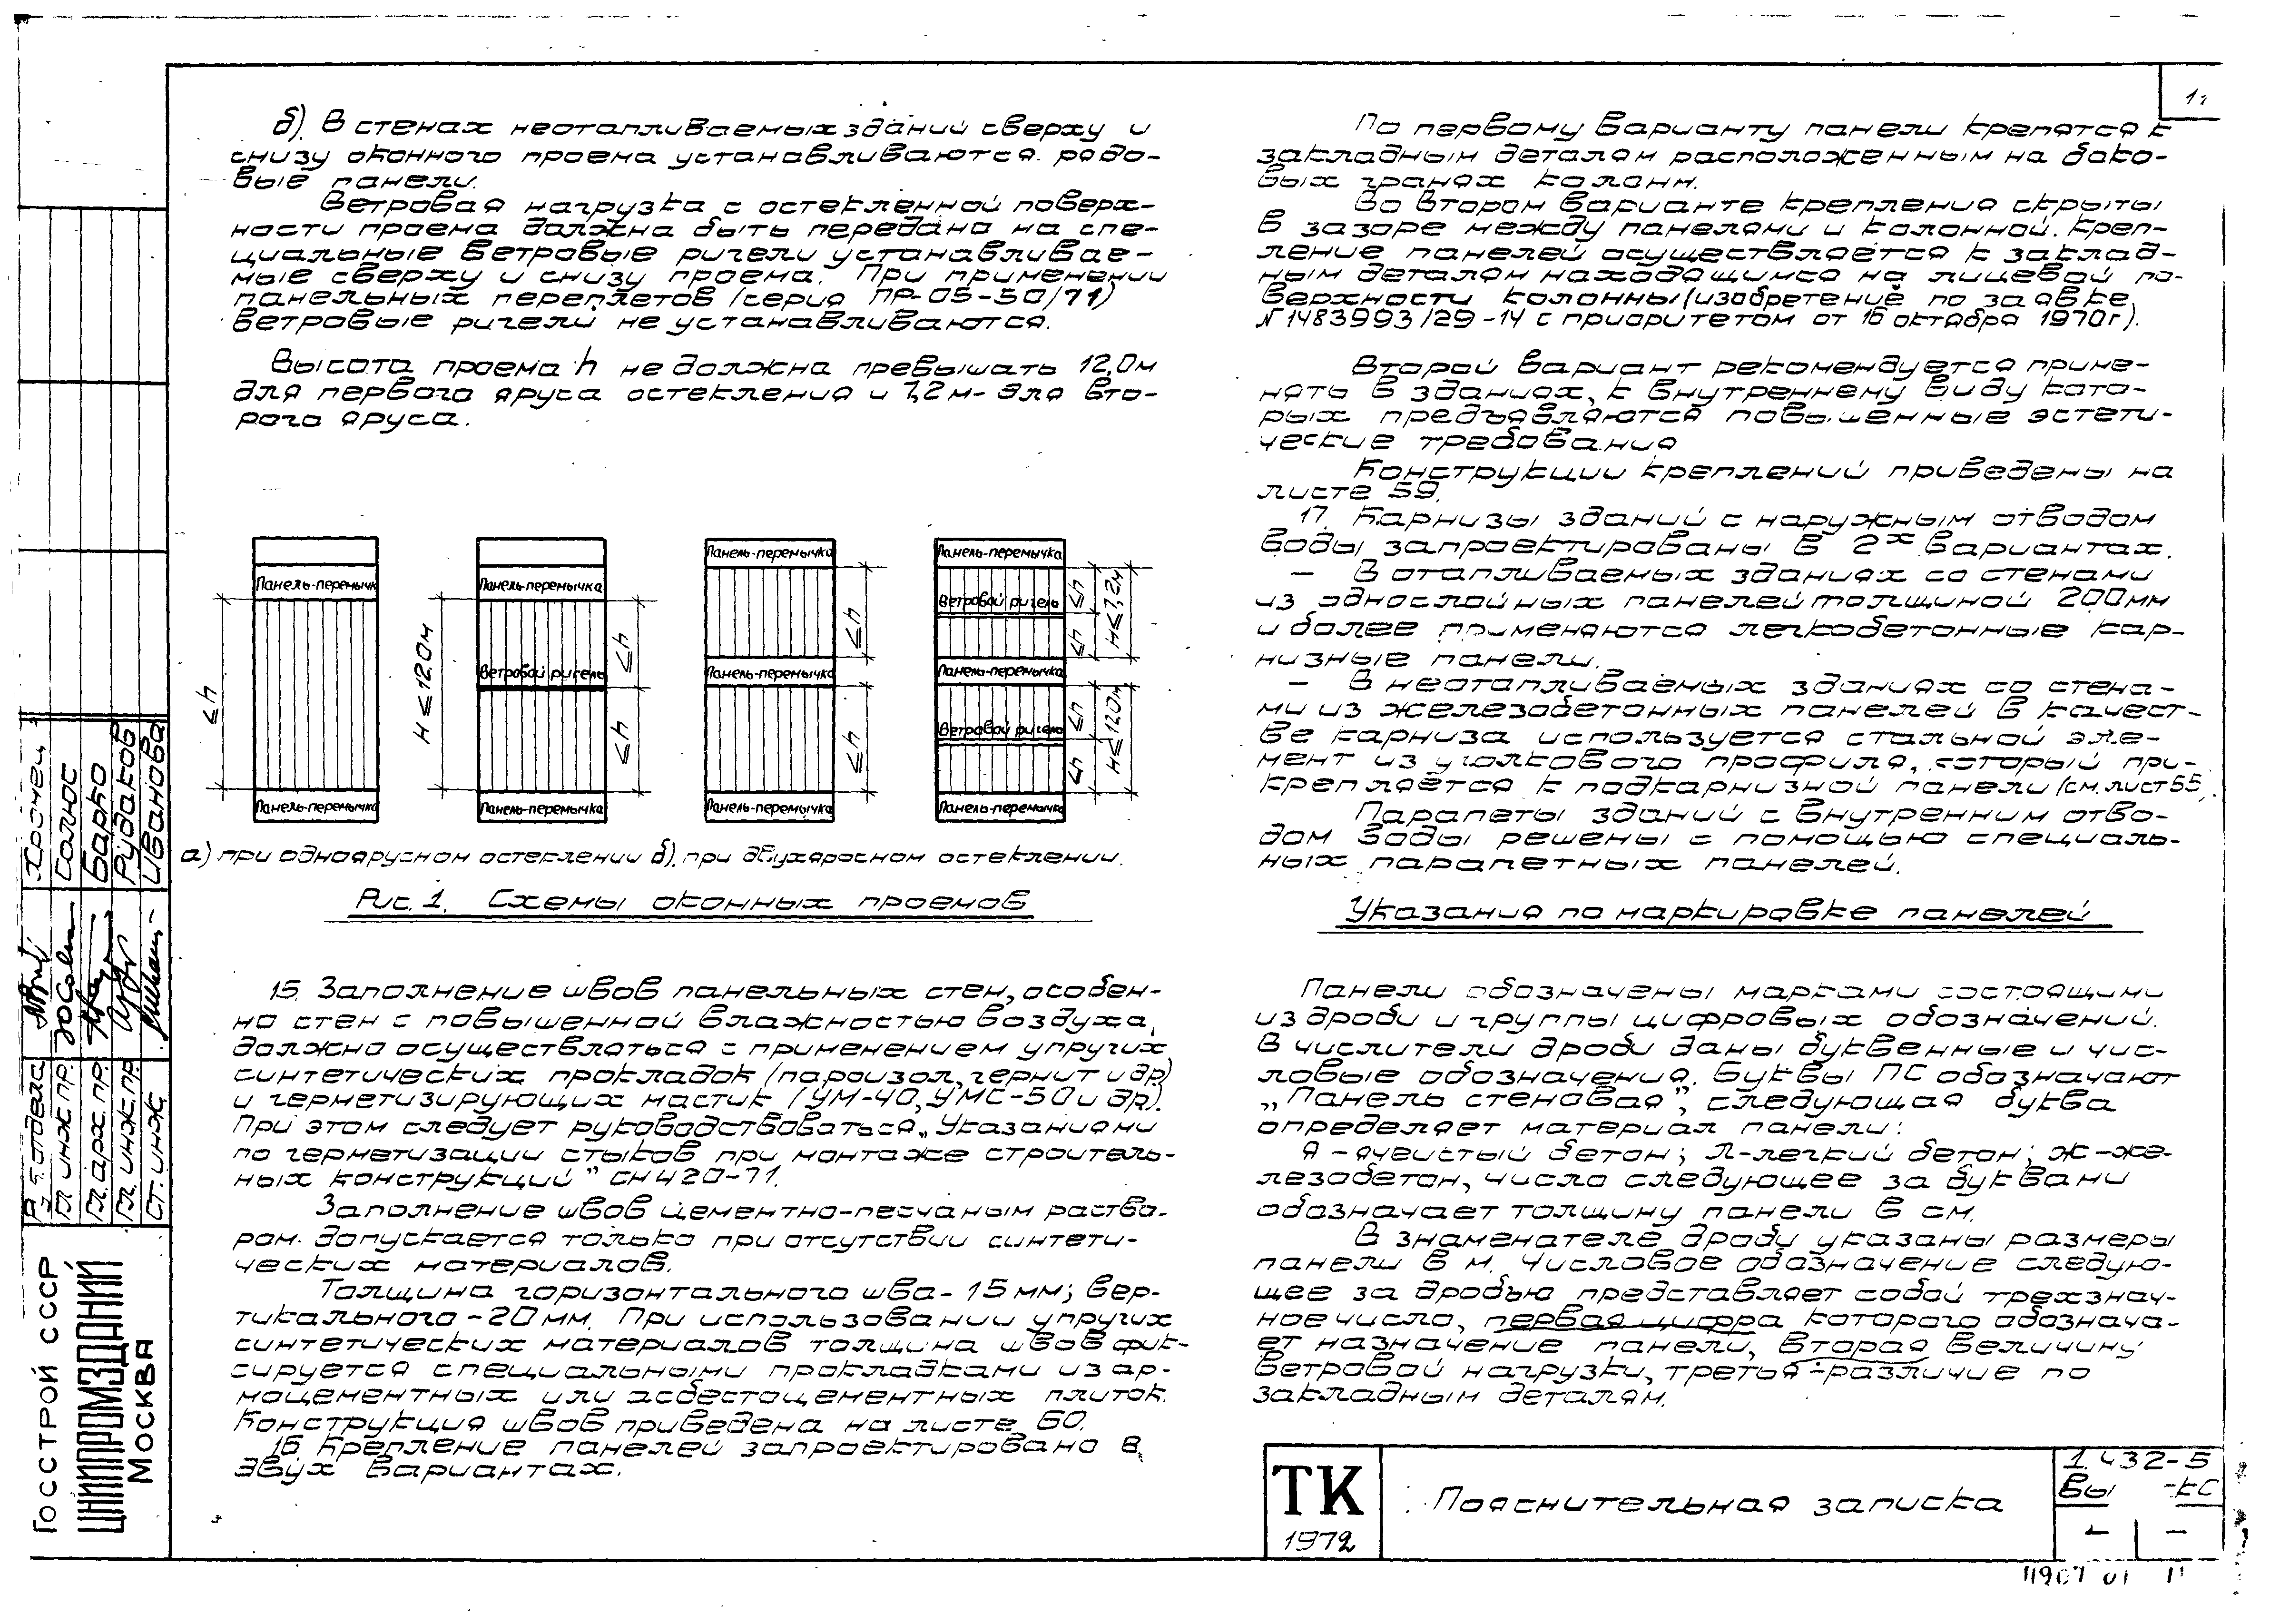 б). В стенах неотапливаемых зданий сверху и
снизу оконного проема устанавливаются рядо-
вые панели.
Ветровая нагрузка с остекленной поверх-
ности проема должна быть передана на спе-
циальные ветровые ригели устанавливае-
мые сверху и снизу проема. При применении
панельных переплетов (серия ПР-05-50/71)
ветровые ригели не устанавливаются.
Высота проема h не должна превышать 12,0м
для первого яруса остекления и 7,2 м- для вто-
рого яруса.
Панель-перемычк
Панель-перемычка
≤h
Панель-перемычка
Ветровой ригель
Панель-перемычка
H ≤ 12.0 м
≤h
≤h
Панель-перемычка
Панель-перемычка
Панель-перемычка
≤h
≤h
Панель-перемычка
Ветровой ригель
Панель-перемычка
Ветровой ригель
Панель-перемычка
≤h
≤h
≤h
≤h
H≤7,2м
H≤12.0м
а) при одноярусном остеклении б). при двухяросном остеклении.
Рис. 1. Схемы оконных проемов
15. Заполнение швов панельных стен, особен-
но стен с повышенной влажностью воздуха,
должно осуществляться с применением упругих
синтетических прокладок (пароизол, гернит и др)
и герметизирующих мастик (УМ-40, УМС-50 и др).
При этом следует руководствоваться „Указаниями
по герметизации стыков при монтаже строитель-
ных конструкций" СН 420-71.
Заполнение швов цементно-песчаным раство-
ром. допускается только при отсутствии синтети-
ческих материалов.
Толщина горизонтального шва- 15 мм; вер-
тикального -20 мм. При использовании упругих
синтетических материалов толщина швов фик-
сируется специальными прокладками из ар-
моцементных или асбестоцементных плиток.
Конструкция швов приведена на листе 60.
16. Крепление панелей запроектировано в
двух вариантах.
По первому варианту панели крепятся к
закладным деталям расположенным на боко-
вых гранях колонн.
Во втором варианте крепления скрыты
в зазоре между панелями и колонной. Креп-
ление панелей осуществляется к заклад-
ным деталям находящимся на лицевой по-
верхности колонны (изобретение по заявке
№1483993/29-14 с приоритетом от 16 октября 1970г).
Второй вариант рекомендуется приме-
нять в зданиях, к внутреннему виду кото-
рых предъявляются повышенные эстети-
ческие требования
Конструкции креплений приведены на
листе 59.
17. Карнизы зданий с наружным отводом
воды запроектированы в 2х вариантах.
— В отапливаемых зданиях со стенами
из однослойных панелей толщиной 200мм
и более применяются легкобетонные кар-
низные панели.
— В неотапливаемых зданиях со стена-
ми из железобетонных панелей в качест-
ве карниза используется стальной эле-
мент из уголкового профиля, который при-
крепляется к подкарнизной панели (см. лист 55).
Парапеты зданий с внутренним отво-
дом воды решены с помощью специаль-
ных парапетных панелей.
Указания по маркировке панелей
Панели обозначены марками состоящими
из дроби и группы цифровых обозначений.
В числители дроби даны буквенные и чис-
ловые обозначения. Буквы ПС обозначают
„Панель стеновая", следующая буква
определяет материал панели:
Я -ячеистый бетон; Л-легкий бетон; Ж -же-
лезобетон, число следующее за буквами
обозначает толщину панели в см.
В знаменателе дроби указаны размеры
панели в м. Числовое обозначение следую-
щее за дробью представляет собой трехзнач-
ное число, первая цифра которого обознача-
ет назначение панели, вторая величину
ветровой нагрузки, третья -различие по
закладным деталям.
ТК
1972
Пояснительная записка
1.432-5
Вы -КС
Госстрой СССР
ЦНИИПРОМЗДАНИЙ
Москва
Гл. инж. пр.
Гл. арх. пр.
Гл. инж. пр
Ст. инж.
Солюс
Барко
Рудаков
Иванова